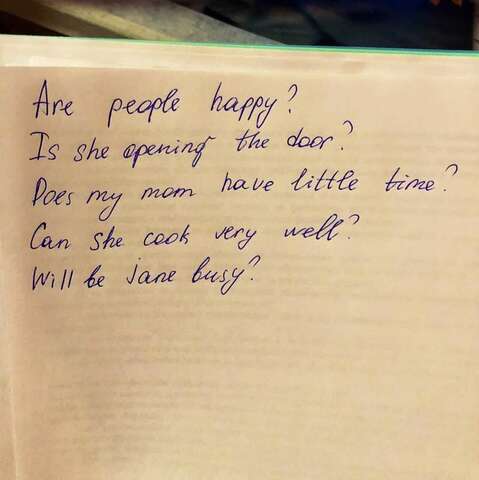 Are people happy?
Is she opening the door?
Does my mom have little time?
Can she cook very well?
Will be jane busy?